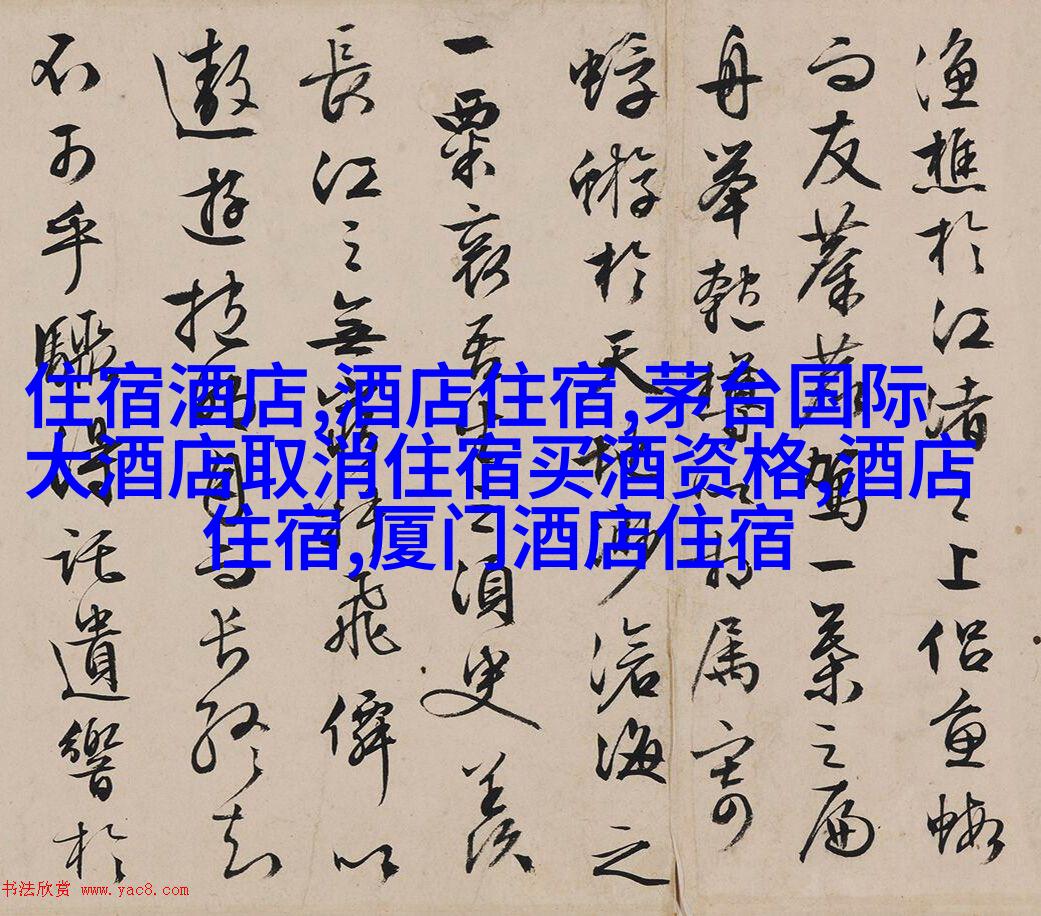 渔樵於江渚之上侣魚蝦
而友麋鹿駕一葉之扁
舟举匏樽以相属寄
蜉蝣於天地渺滄海之
一粟哀吾生之須臾羡
長江之無窮挾飛僊以
遨遊抱明月而長終知
不可乎驟得託遺響於
住宿酒店,酒店住宿,茅台国际
大酒店取消住宿买酒资格,酒店
住宿,厦门酒店住宿
书法欣赏 www.yac8.com